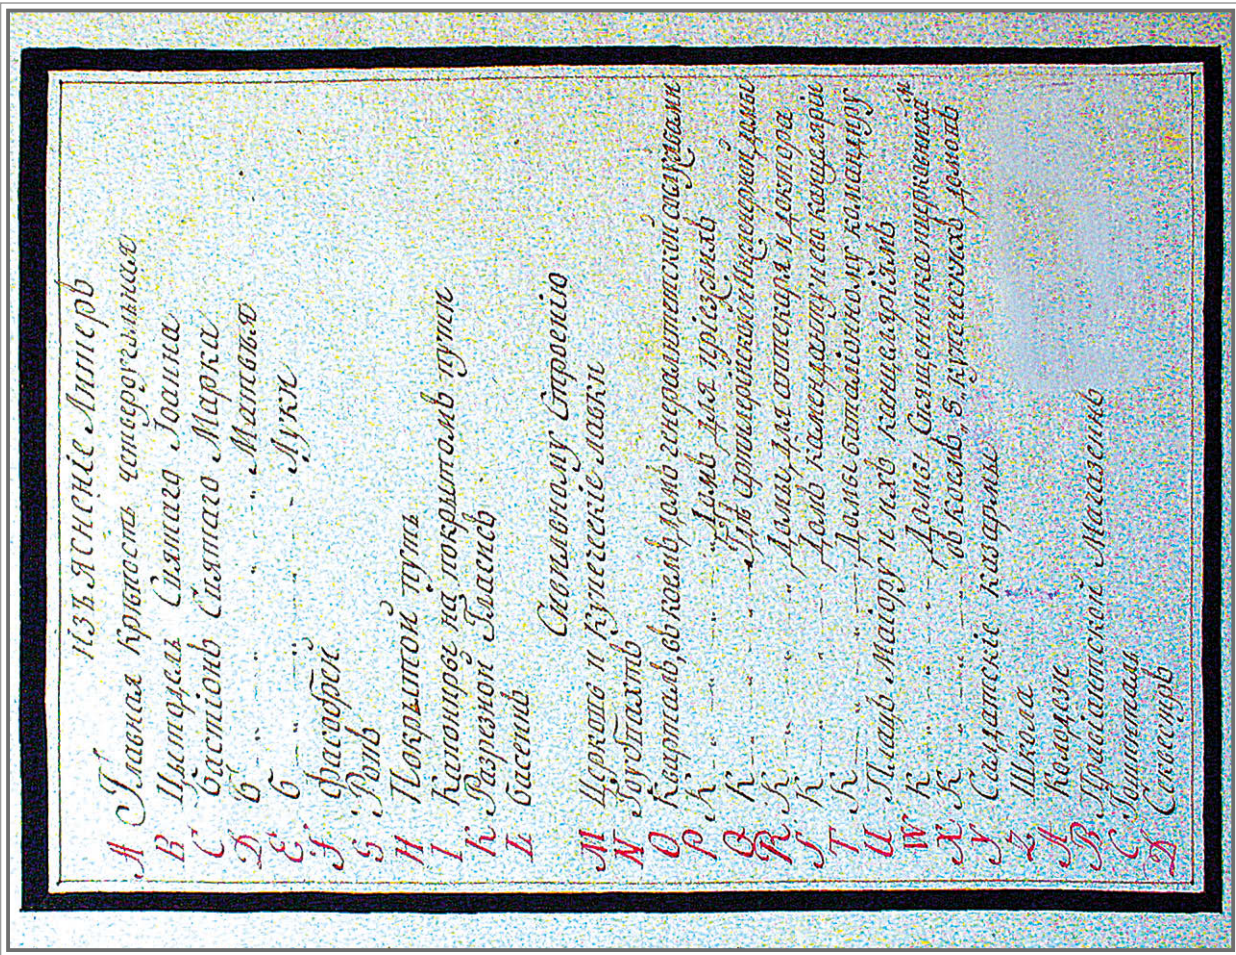 Изъясненіе Литеръ
A Главная крѣпость четвероугольная
B Цитодель Святаго Іоанна
C бастіонъ Святаго Марка
D б „ „ Матвѣя
E б „ Луки
F фасобрей
G Ровъ
H Покрытой путь
I Капониръ на покрытомъ пути
K Разрезной Гласисъ
L басеинъ
Сивильному Строенію
M Церковь и купеческіе лавки
N Гоубтвахтъ
O Кварталъ, въ коемъ домъ генералитетской
P К „ „ Домъ для пріезжихъ
Q К „ „
R К „ „ Домы для аптекаря и доктора
S К „ „ Домъ каменданту и его канцеляріи
T К „ „ Домы баталіонному командиру
U Плацъ Маіору и ихъ канцеляріямъ
W К „ „ Домы Священника
X К „ „ въ коемъ „5„ купеческихъ домовъ
Y Салдатскіе казармы
Z Школа
A Колодезе
B Правіантской Магазеинъ
C
D Секвестръ